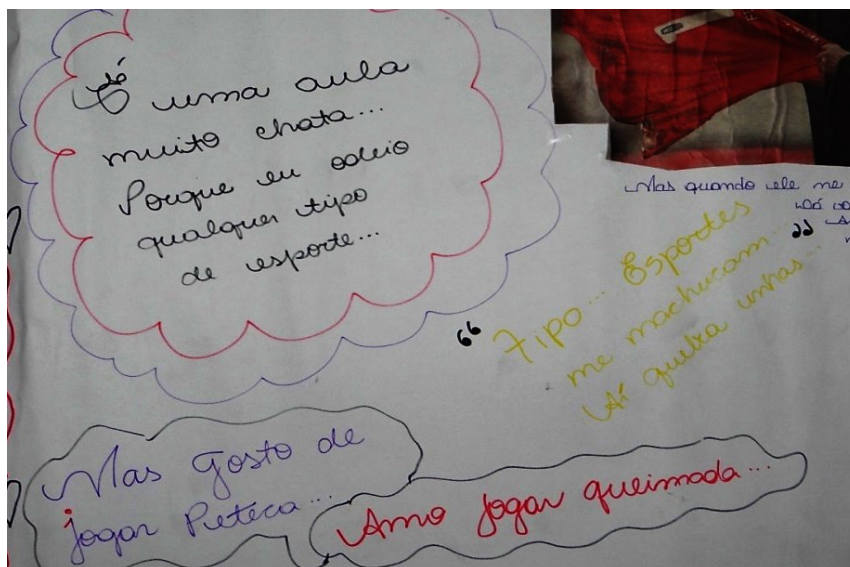 É uma aula
muito chata...
Porque eu odeio
qualquer tipo
de esporte...
Mas quando ele me
“ Tipo... Esportes
me machucam... ”
Aí quebra unhas...
Mas gosto de
jogar Peteca...
Amo jogar queimada...